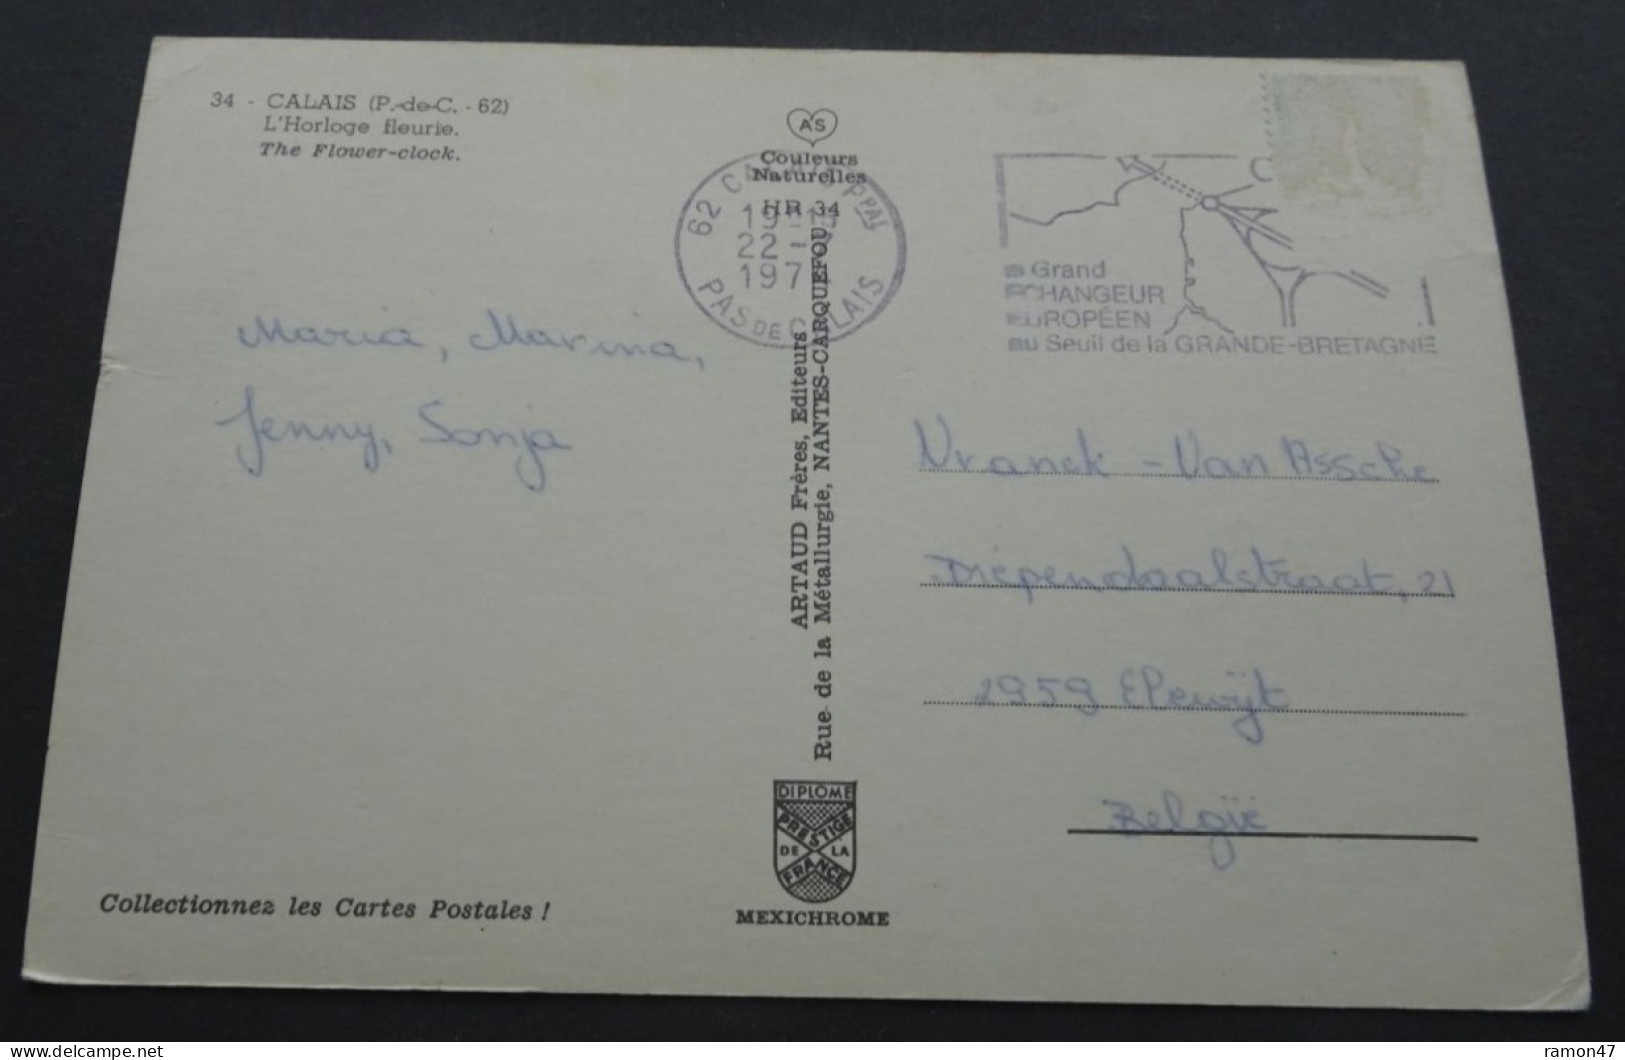 34 - CALAIS (P.-de-C. - 62)
L'Horloge fleurie.
The Flower-clock.
Maria, Marina,
Jenny, Sonja
Collectionnez les Cartes Postales !
AS
Couleurs
Naturelles
HR 34
62 CALAIS Ppal
22
197
PAS DE CALAIS
ARTAUD Frères, Editeurs
Rue de la Métallurgie, NANTES-CARQUEFOU
DIPLOME
PRESTIGE
DE LA
FRANCE
MEXICHROME
Grand
ECHANGEUR
EUROPÉEN
au Seuil de la GRANDE-BRETAGNE
Vranck - Van Assche
Diependaalstraat, 21
2959 Elewijt
België
ramon47